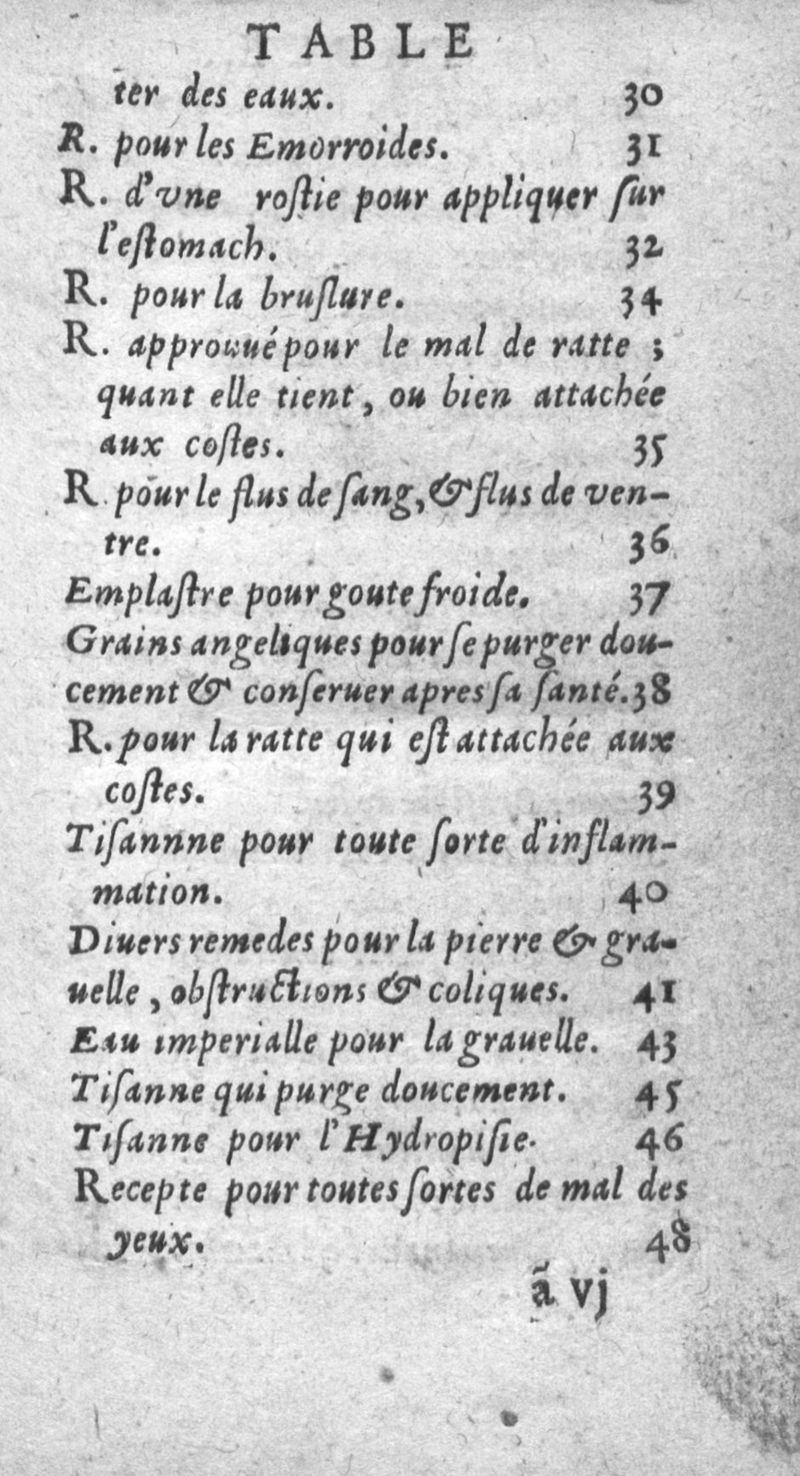 TABLE
ter des eaux. 30
R. pour les Emorroides. 31
R. d'vne roſtie pour appliquer ſur
l'eſtomach. 32
R. pour la bruſlure. 34
R. approuué pour le mal de ratte ;
quant elle tient, ou bien attachée
aux coſtes. 35
R. pour le flus de ſang, & flus de ven-
tre. 36
Emplaſtre pour goute froide. 37
Grains angeliques pour ſe purger dou-
cement & conſeruer apres ſa ſanté. 38
R. pour la ratte qui eſt attachée aux
coſtes. 39
Tiſannne pour toute ſorte d'inflam-
mation. 40
Diuers remedes pour la pierre & gra-
uelle, obſtructions & coliques. 41
Eau imperialle pour la grauelle. 43
Tiſanne qui purge doucement. 45
Tiſanne pour l'Hydropiſie. 46
Recepte pour toutes ſortes de mal des
yeux. 48
ã vj